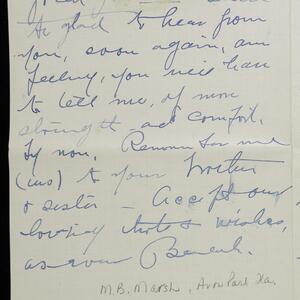 to glad to hear from
you, soon again, am
feeling, you will have
to tell me, of more
strength and comfort,
by now. Remember me
(us) to your brother
& sister – Accept our
loving thots & wishes,
as ever
M.B. Marsh, Avon Park Fla.